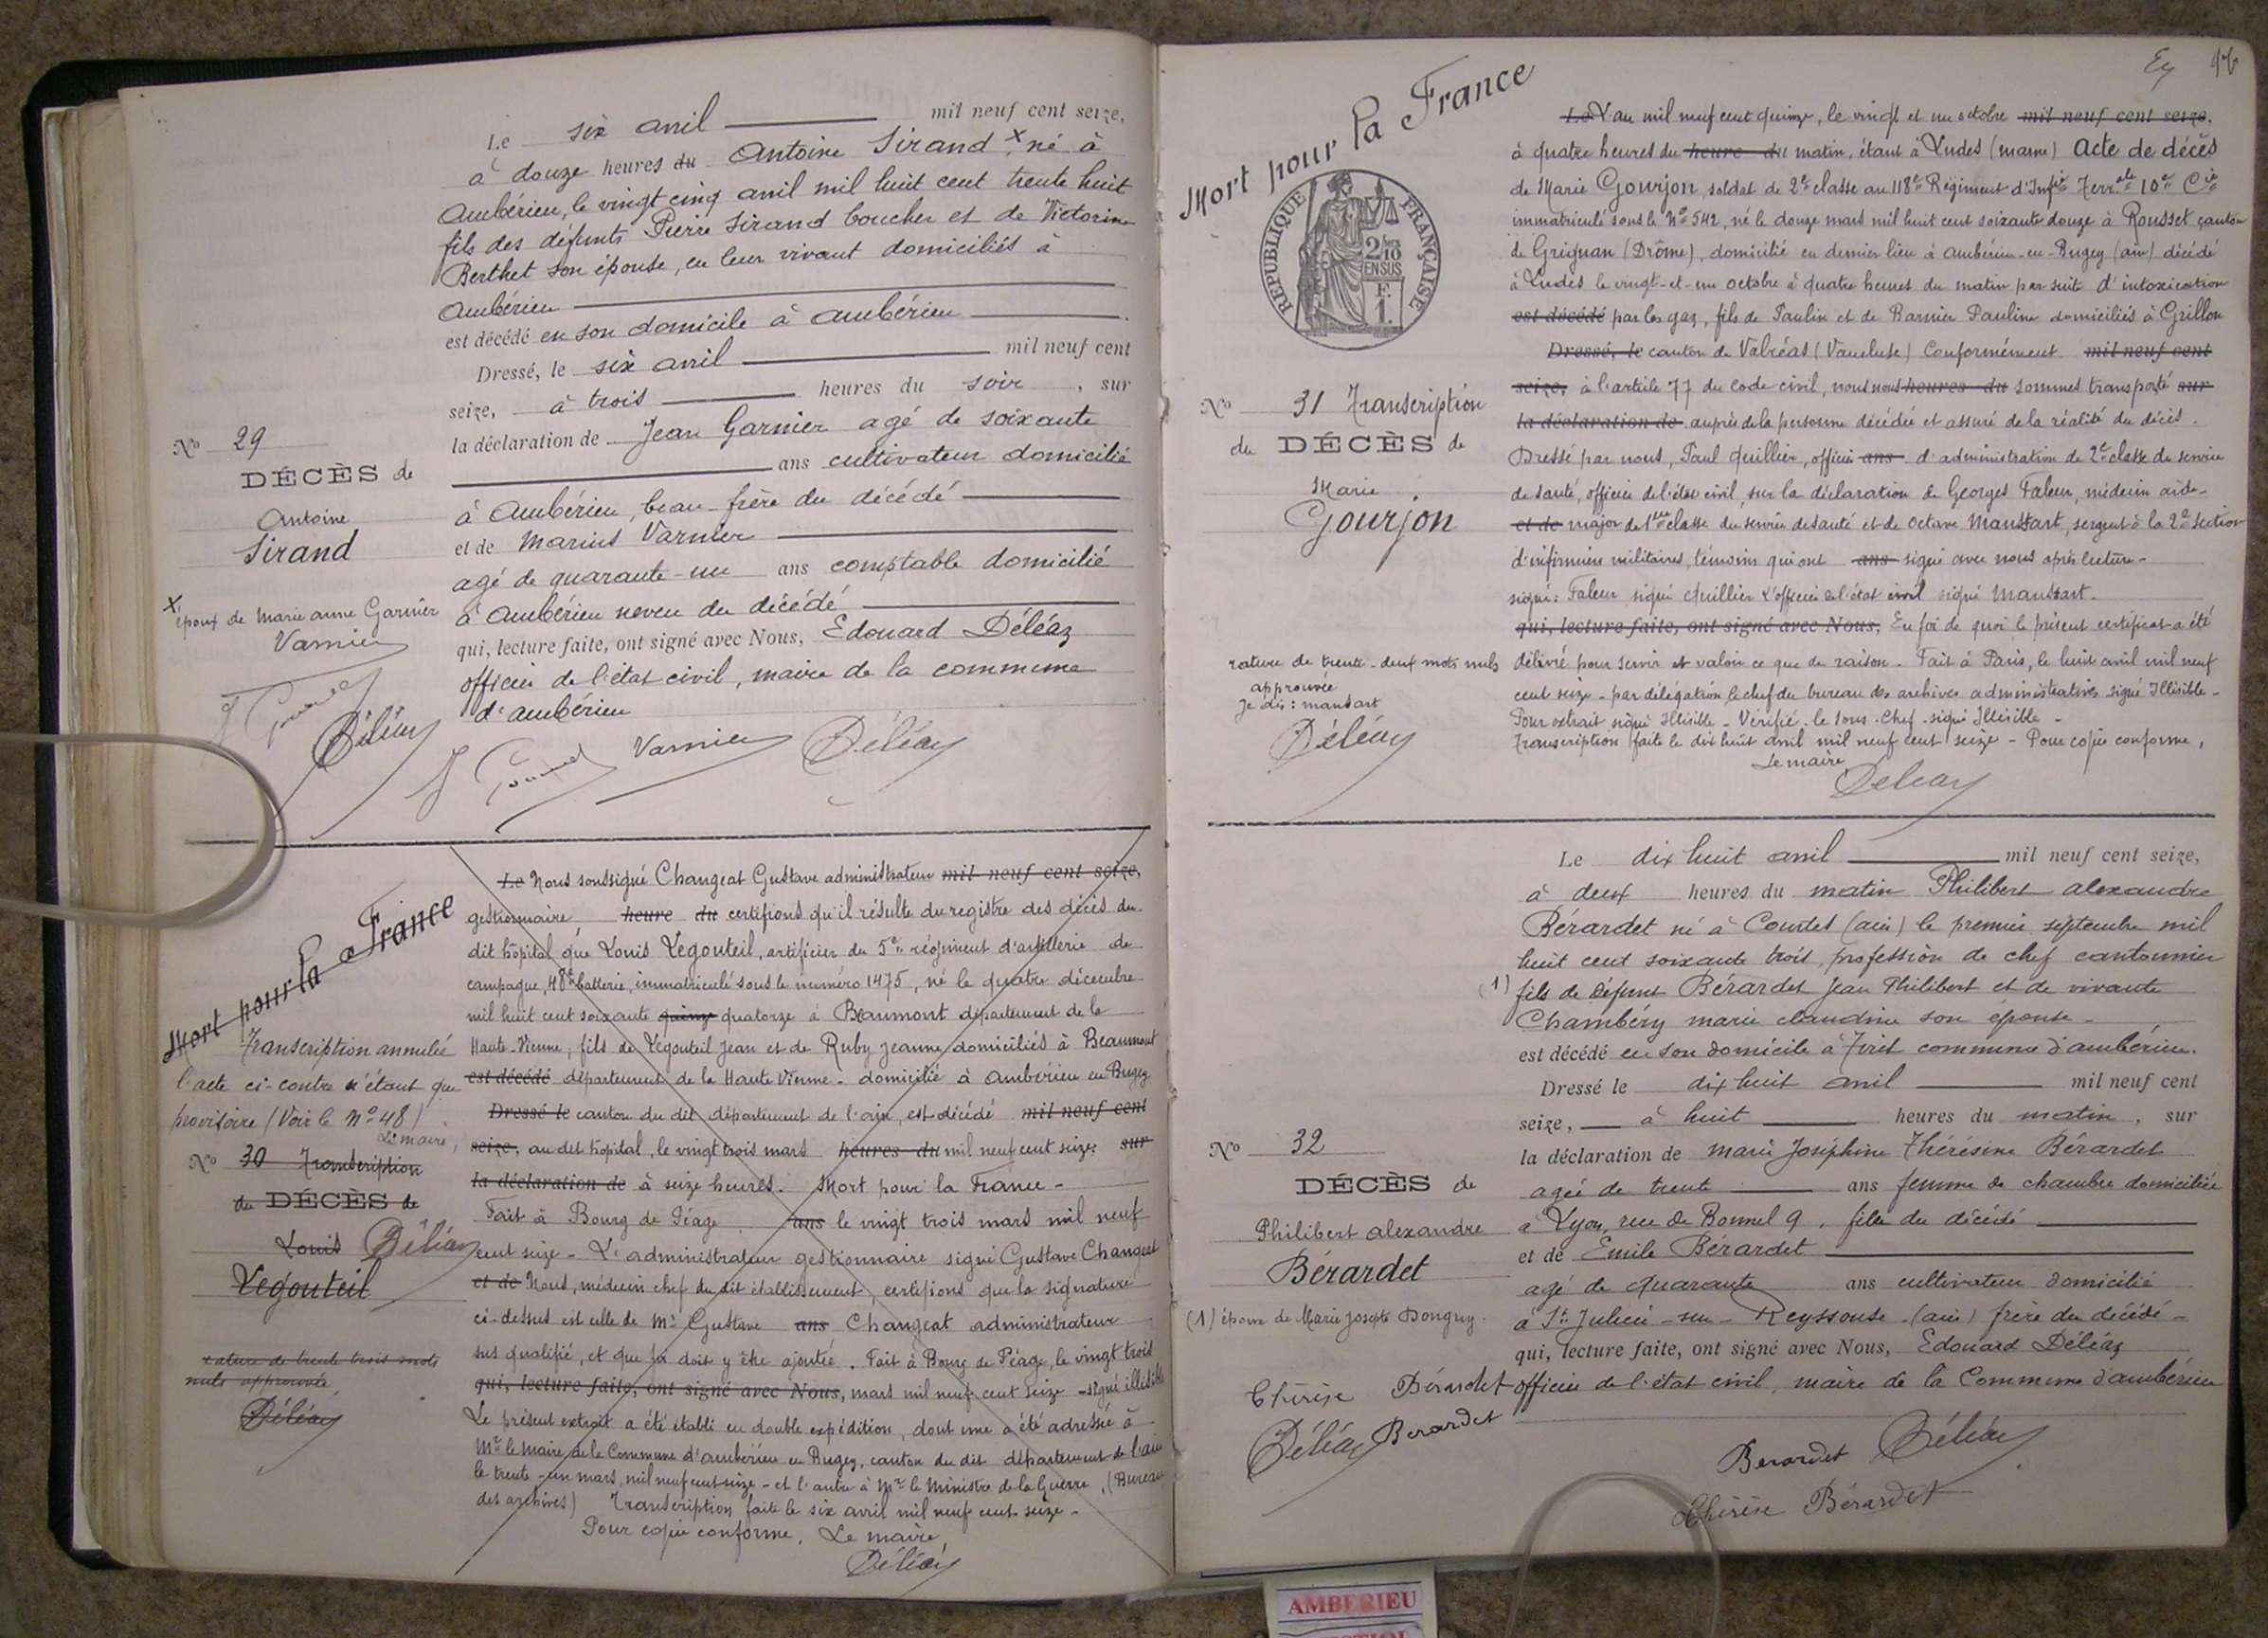 Le six avril mil neuf cent seize,
à douze heures du Antoine Sirand x né à
Ambérieu, le vingt cinq avril mil huit cent trente huit
fils des défunts Pierre Sirand boucher et de Victorine
Berthet son épouse, en leur vivant domiciliés à
Ambérieu
est décédé en son domicile à Ambérieu
Dressé, le six avril mil neuf cent
seize, à trois heures du soir, sur
la déclaration de Jean Garnier agé de soixante
ans cultivateur domicilié
à Ambérieu, beau-frère du décédé
et de Marius Varnier
agé de quarante-un ans comptable domicilié
à Ambérieu neveu du décédé
qui, lecture faite, ont signé avec Nous, Edouard Déléaz
officier de l'état civil, maire de la commune
d'Ambérieu
No 29
DÉCÈS de
Antoine
Sirand
x époux de Marie Anne Garnier
Varnier
Déléaz
Varnier Déléaz
Mort pour la France
Transcription annulée
l'acte ci-contre n'étant que
provisoire (Voir le No 48)
Le maire,
No 30 Transcription
du DÉCÈS de
Louis Déléaz
Legouteil
rature de trente trois mots
nuls approuvée
Déléaz
Le Nous soussigné Changeat Gustave administrateur mil neuf cent seize,
gestionnaire heure du certifions qu'il résulte du registre des décès du
dit hôpital que Louis Legouteil, artificier du 5e régiment d'artillerie de
campagne, 48e batterie, immatriculé sous le numéro 1475, né le quatre décembre
mil huit cent soixante quinze quatorze à Beaumont département de la
Haute-Vienne, fils de Legouteil Jean et de Ruby Jeanne domiciliés à Beaumont
est décédé département de la Haute Vienne - domicilié à Ambérieu en Bugey
Dressé le canton du dit département de l'ain, est décédé mil neuf cent
seize, au dit hôpital, le vingt trois mars heures du mil neuf cent seize sur
la déclaration de à seize heures. Mort pour la France -
Fait à Bourg de Péage ans le vingt trois mars mil neuf
cent seize - L'administrateur gestionnaire signé Gustave Changeat
et de Nous, médecin chef du dit établissement, certifions que la signature
ci-dessus est celle de Mr Gustave ans Changeat administrateur
sus qualifié, et que foi doit y être ajoutée. Fait à Bourg de Péage, le vingt trois
qui, lecture faite, ont signé avec Nous, mars mil neuf cent seize - signé illisible
Le présent extrait a été établi en double expédition, dont une a été adressée à
Mr le Maire de la Commune d'Ambérieu en Bugey, canton du dit département de l'ain
le trente-un mars, mil neuf cent seize - et l'autre à Mr le Ministre de la Guerre, (Bureau
des archives) Transcription faite le six avril mil neuf cent seize -
Pour copie conforme, Le maire,
Déléaz
Mort pour la France
RÉPUBLIQUE FRANÇAISE
2/10
EN SUS
F.
1.
No 31 Transcription
du DÉCÈS de
Marie
Gourjon
rature de trente-deux mots nuls
approuvée
Je dis : mansart
Déléaz
Le L'an mil neuf cent quinze, le vingt et un octobre mil neuf cent seize,
à quatre heures du heure du matin, étant à Ludes (marne) Acte de décès
de Marie Gourjon, soldat de 2e classe au 118e Régiment d'Infie Terrale 10e Cie
immatriculé sous le No 542, né le douze mars mil huit cent soixante douze à Rousset canton
de Grignan (Drôme), domicilié en dernier lieu à Ambérieu-en-Bugey (ain) décédé
à Ludes le vingt-et-un octobre à quatre heures du matin par suite d'intoxication
est décédé par les gaz, fils de Paulin et de Barnier Pauline domiciliés à Grillon
Dressé, le canton de Valréas (Vaucluse) Conformément mil neuf cent
seize, à l'article 77 du code civil, nous nous heures du sommes transporté sur
la déclaration de auprès de la personne décédée et assuré de la réalité du décès.
Dressé par nous, Paul Quillier, officier ans d'administration de 2e classe du service
de santé, officier de l'état civil, sur la déclaration de Georges Faleur, médecin aide-
et de major de 1ère classe du service de santé et de Octave Mansart, sergent à la 2e section
d'infirmiers militaires, témoins qui ont ans signé avec nous après lecture -
signé : Faleur, signé Quillier L'officier de l'état civil signé Mansart.
qui, lecture faite, ont signé avec Nous, En foi de quoi le présent certificat a été
délivré pour servir et valoir ce que de raison. Fait à Paris, le huit avril mil neuf
cent seize - par délégation, le chef du bureau des archives administratives signé Illisible -
Pour extrait signé Illisible - Vérifié - le Sous-Chef - signé Illisible -
Transcription faite le dix huit avril mil neuf cent seize - Pour copie conforme,
Le maire
Déléaz
Le dix huit avril mil neuf cent seize,
à deux heures du matin Philibert Alexandre
Bérardet né à Courtes (ain) le premier septembre mil
huit cent soixante trois, profession de chef cantonnier
(1) fils de défunt Bérardet Jean Philibert et de vivante
Chambéry marie claudine son épouse -
est décédé en son domicile à Tiret commune d'ambérieu.
Dressé le dix huit avril mil neuf cent
seize, à huit heures du matin, sur
la déclaration de Marie Joséphine Thérésine Bérardet
agée de trente ans femme de chambre domiciliée
à Lyon, rue de Bonnel 9, fille du décédé
et de Emile Bérardet
agé de quarante ans cultivateur domicilié
à St Julien-sur-Reyssouse (ain) frère du décédé -
qui, lecture faite, ont signé avec Nous, Edouard Déléaz
officier de l'état civil, maire de la Commune d'ambérieu
No 32
DÉCÈS de
Philibert alexandre
Bérardet
(1) époux de Marie Josephte Donguy.
Thérèse Bérardet
Déléaz Berardet
Berardet Déléaz
Thérèse Bérardet
AMBERIEU